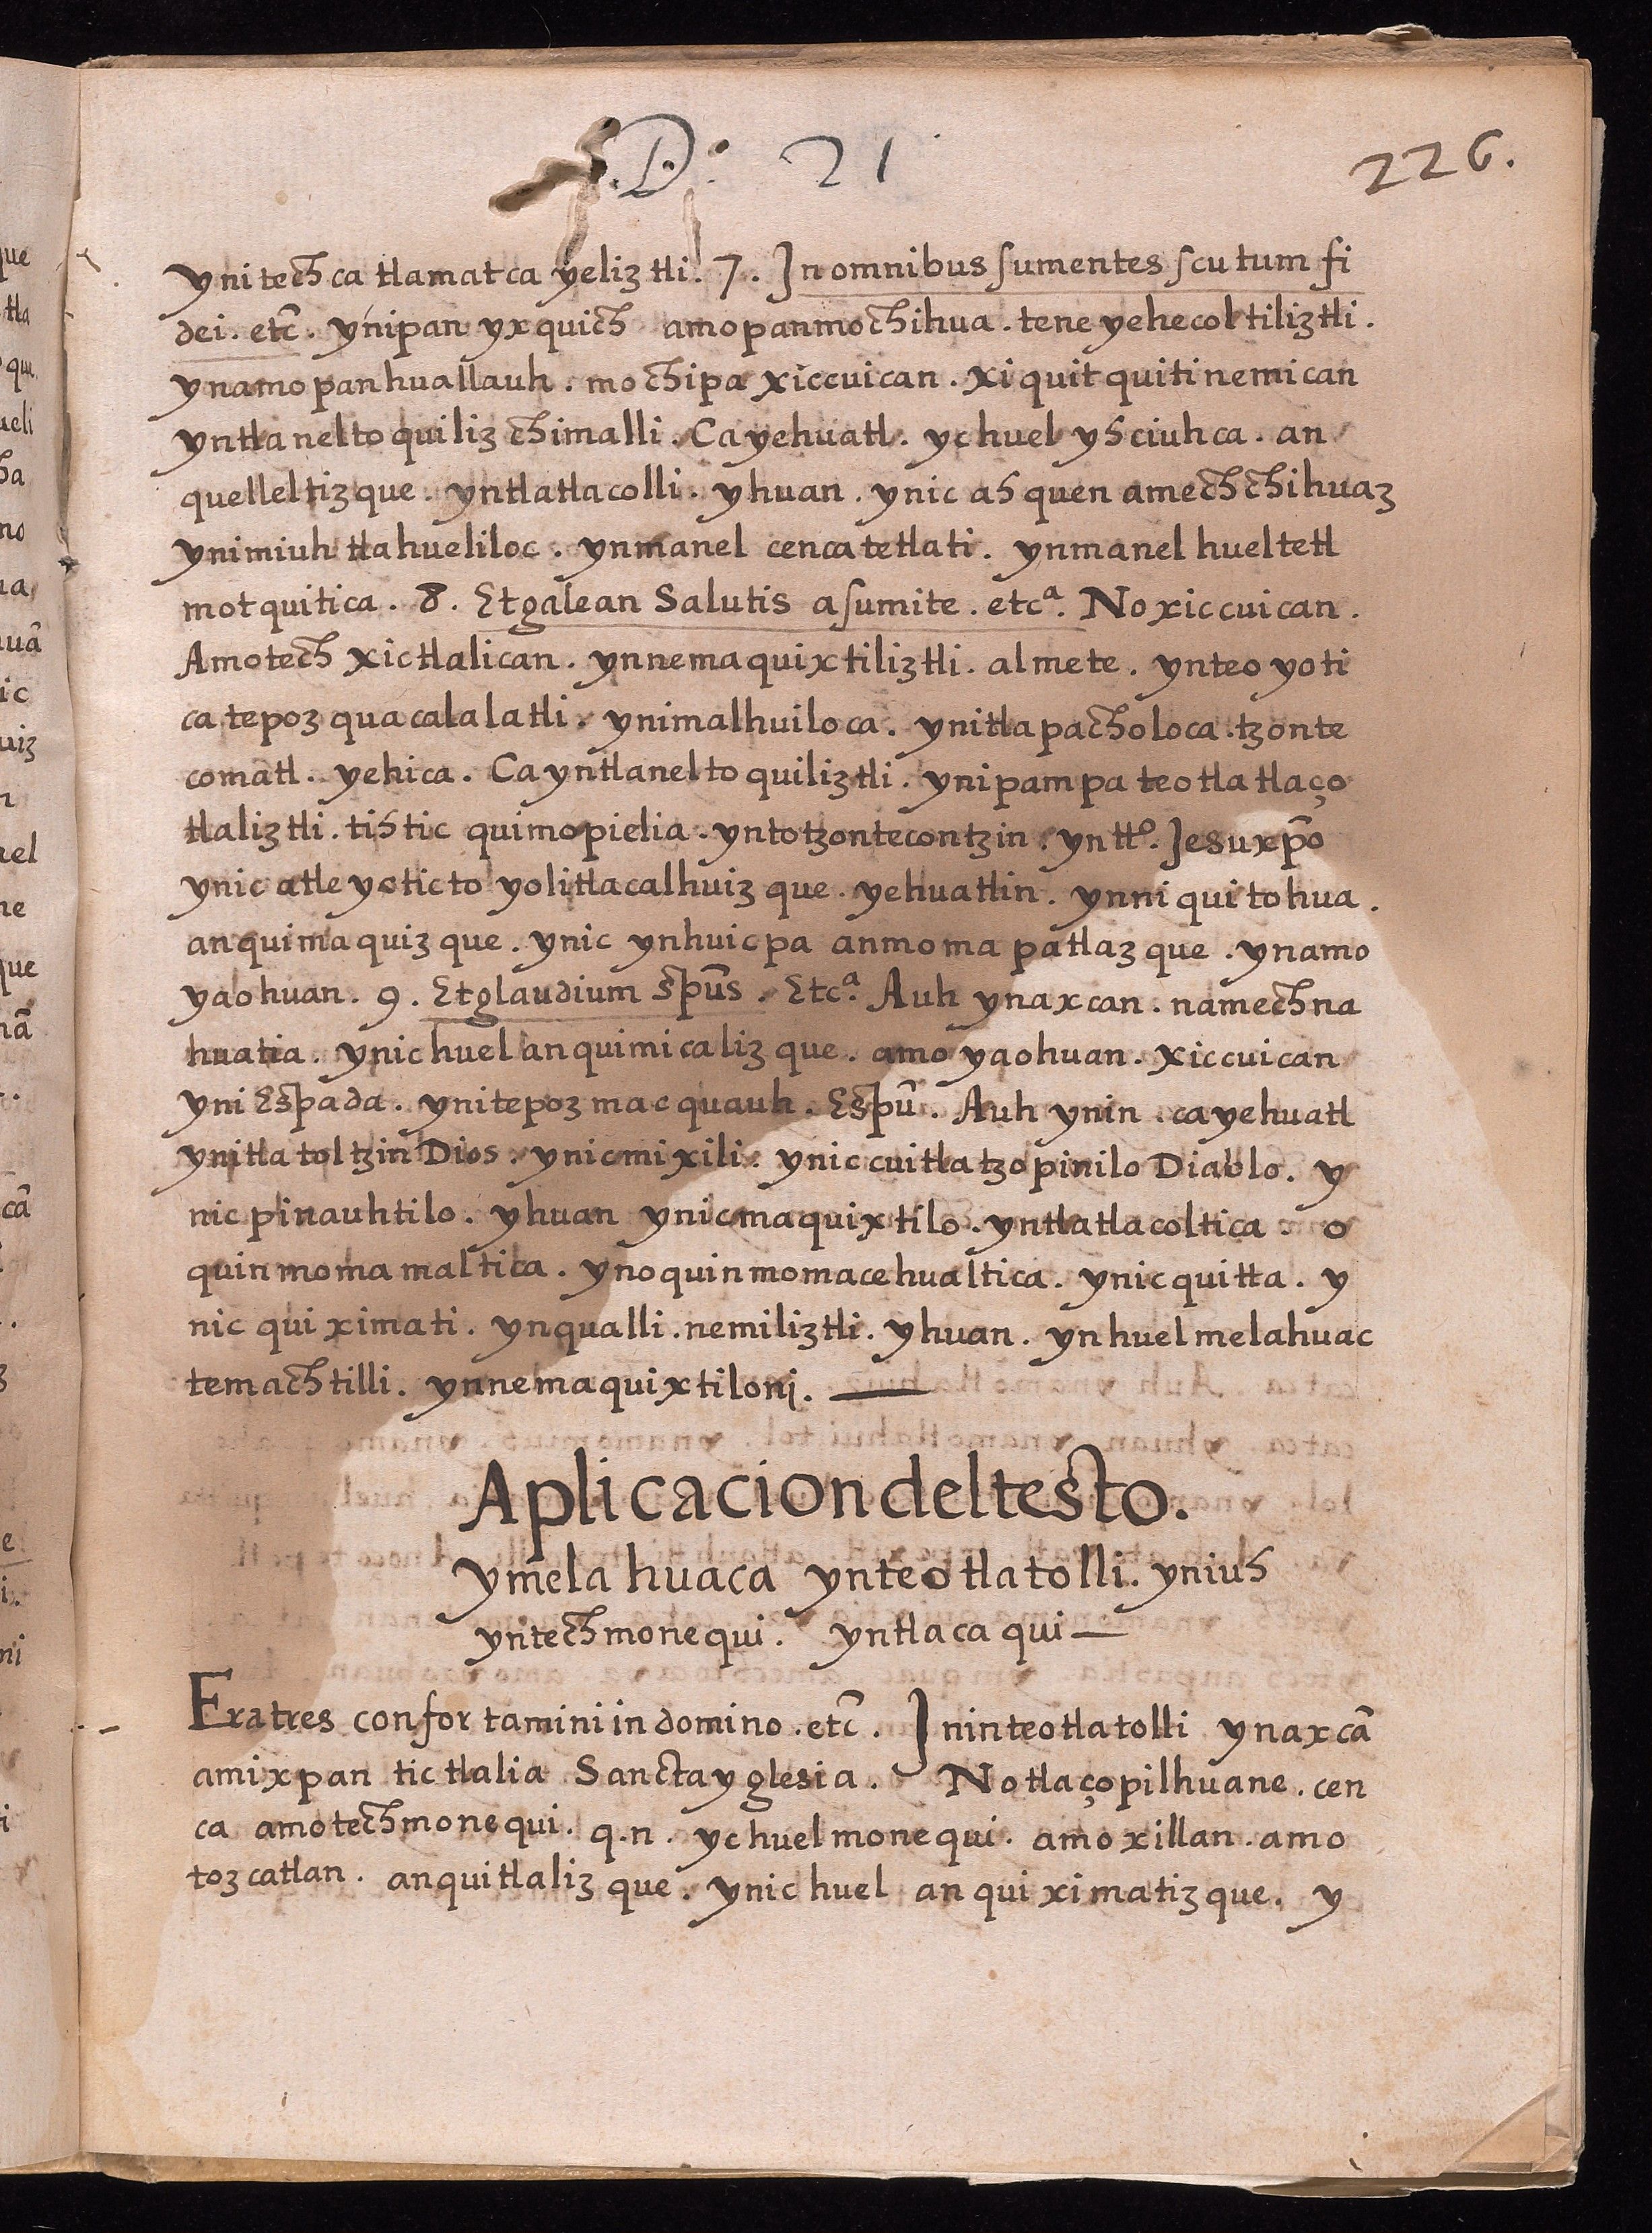 .D.º 21
226.
yni tech ca tlamatca yeliztli. 7. In omnibus sumentes scutum fi
dei. etc̃. ynipan yxquich amopanmochihua. teneyehecoltiliztli.
ynamo panhuallauh. mochipa xiccuican. xiquitquitinemican
yntlaneltoquiliz chimalli. Ca yehuatl. yc huel ysciuhca. an
quelleltizque. yntlatlacolli. yhuan. ynic asquen amechchihuaz
ynimiuh tlahueliloc. ynmanel cencatetlati. ynmanel hueltetl
motquitica. 8. Et galean Salutis asumite. etcª. No xiccuican.
Amotech xictlalican. ynnemaquixtiliztli. almete. ynteoyoti
ca tepozquacalalatli. ynimalhuiloca. ynitlapacholoca. tzonte
comatl. yehica. Ca yntlaneltoquiliztli. ynipampa teotlatlaço
tlaliztli. tistic quimopielia. yntotzontecontzin. yntt⁰. Jesuxp̃o
ynic atle yc ticto yolitlacalhuizque. yehuatlin. ynniquitohua.
anquimaquizque. ynic ynhuicpa anmomapatlazque. ynamo
yaohuan. 9. Et glaudium sp̃us. Etcª. Auh ynaxcan. namechna
huatia. ynic huel anquimicalizque. amo yaohuan. xiccuican
yni Espada. ynitepozmacquauh. Esp̃u. Auh ynin. ca yehuatl
ynitlatoltzin Dios. ynicmixili. ynic cuitlatzopinilo Diablo. y
nic pinauhtilo. yhuan ynicmaquixtilo. yntlatlacoltica. o
quinmomamaltica. ynoquinmomacehualtica. ynic quitta. y
nic quiximati. ynqualli. nemiliztli. yhuan. ynhuelmelahuac
temachtilli. ynnemaquixtiloni.
Aplicacion del testo.
Ymelahuaca ynteotlatolli. yniuh
yntechmonequi. yntlacaqui
Fratres confortamini in domino. etc̃. Jninteotlatolli ynaxcã
amixpan tictlalia Sancta yglesia. Notlaçopilhuane. cen
ca amotechmonequi. q.n. yc huel monequi. amoxillan. amo
tozcatlan. anquitlalizque. ynic huel anquiximatizque. y